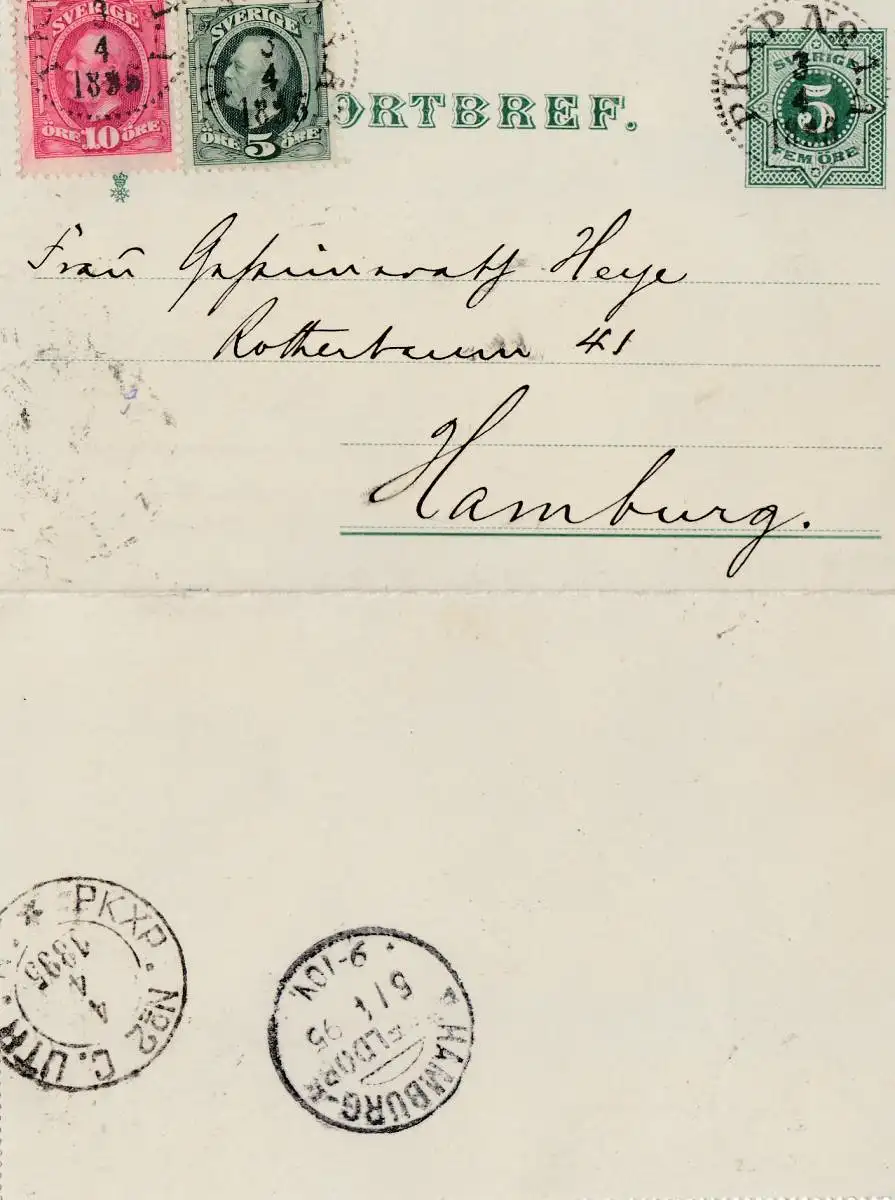 SVERIGE
3
4
1895
ÖRE 10 ÖRE
SVERIGE
3
4
1895
ÖRE 5 ÖRE
ORTBREF.
PKXP. No 1.
3
4
SVERIGE
5
FEM ÖRE
Frau Heye
Rotherbaum 41
Hamburg.
PKXP. No 2 C. UTR.
4
4
1895
HAMBURG
5/4 95
9-10V.